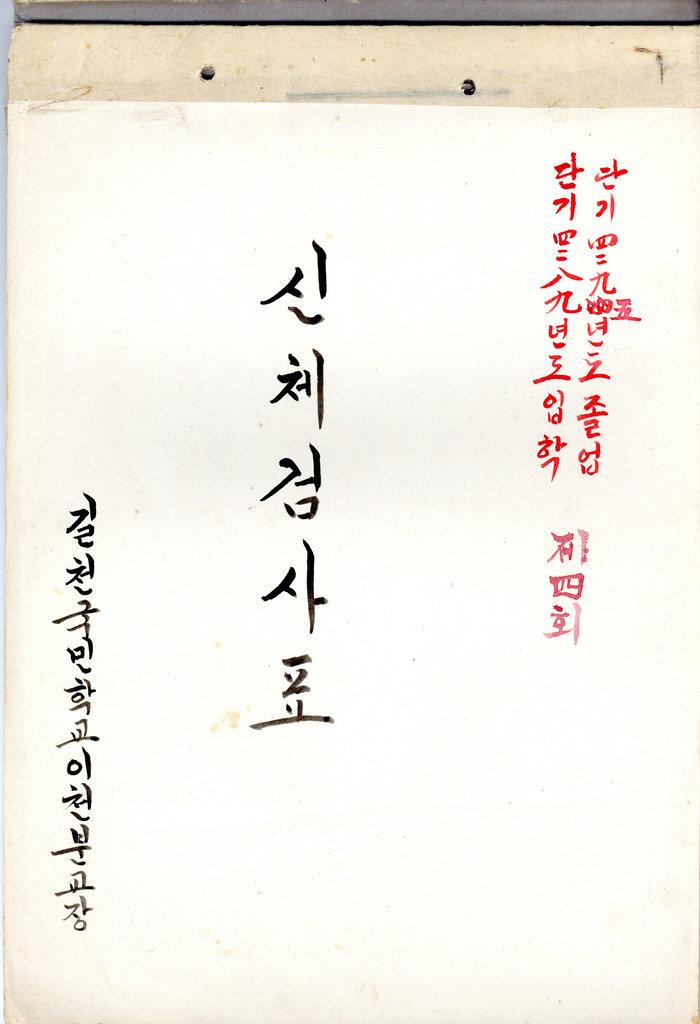 단기四二九五년도졸업
단기四二八九년도입학
제四회
신체검사표
길천국민학교이천분교장